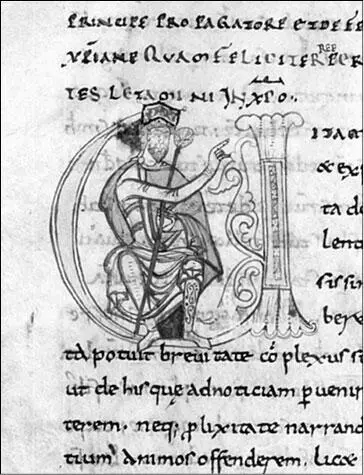 PRINCIPE PROPAGATORE ET DEFE
XPIANE QUAM FELICITER PER
IN XPO.
ITA
& ex
ta d
lent
sissi
ber
tā potuit breuitate cōplexus
ut de his que ad noticiam peruenir
terem. neq; plixitate narran
tiu animos offenderem. lic&